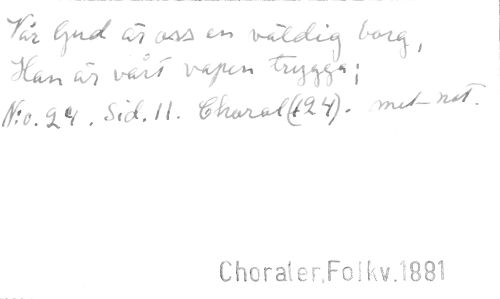 Vår Gud är oss en väldig borg,
Han är vårt vapen trygga;
N:o. 24. Sid. 11. Choral (124). met not.
Choraler, Folkv. 1881